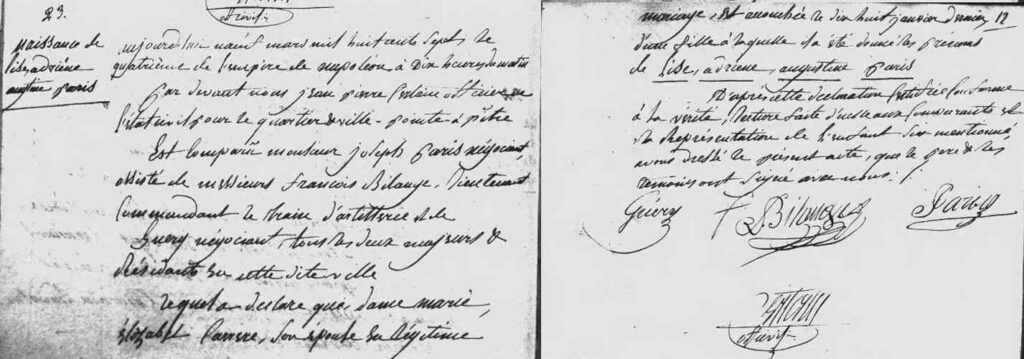 23.
Naissance de
Lise, adriene
augtine paris
aujourdhui neuf mars mil huit cents sept, le
quatrieme de l'empire de napoléon, à dix heures du matin
par devant nous jean pierre officier de
l'état civil pour le quartier & ville - pointe-à-pitre
Est comparu monsieur joseph paris négociant,
assisté de messieurs françois Bilange, lieutenant
Commandant le traine d'artillerie et de
Guery négociant, tous les deux majeurs &
Résidants en cette dite ville
Lequel a declare que dame marie,
Elizabet Carrere, son épouse en légitime
mariage, est accouchée le dix huit janvier dernier
12
d'une fille à laquelle il a été donné les prénoms
de Lise, adriene, augustine paris
D'après cette declaration Certifiée Conforme
à la vérité, lecture faite d'icelle aux Comparants &
la Représentation de l'enfant sus mentionné,
avons dressé le présent acte, que le pere & les
temoins ont signé avec nous ./.
Guery
F Bilange
Paris